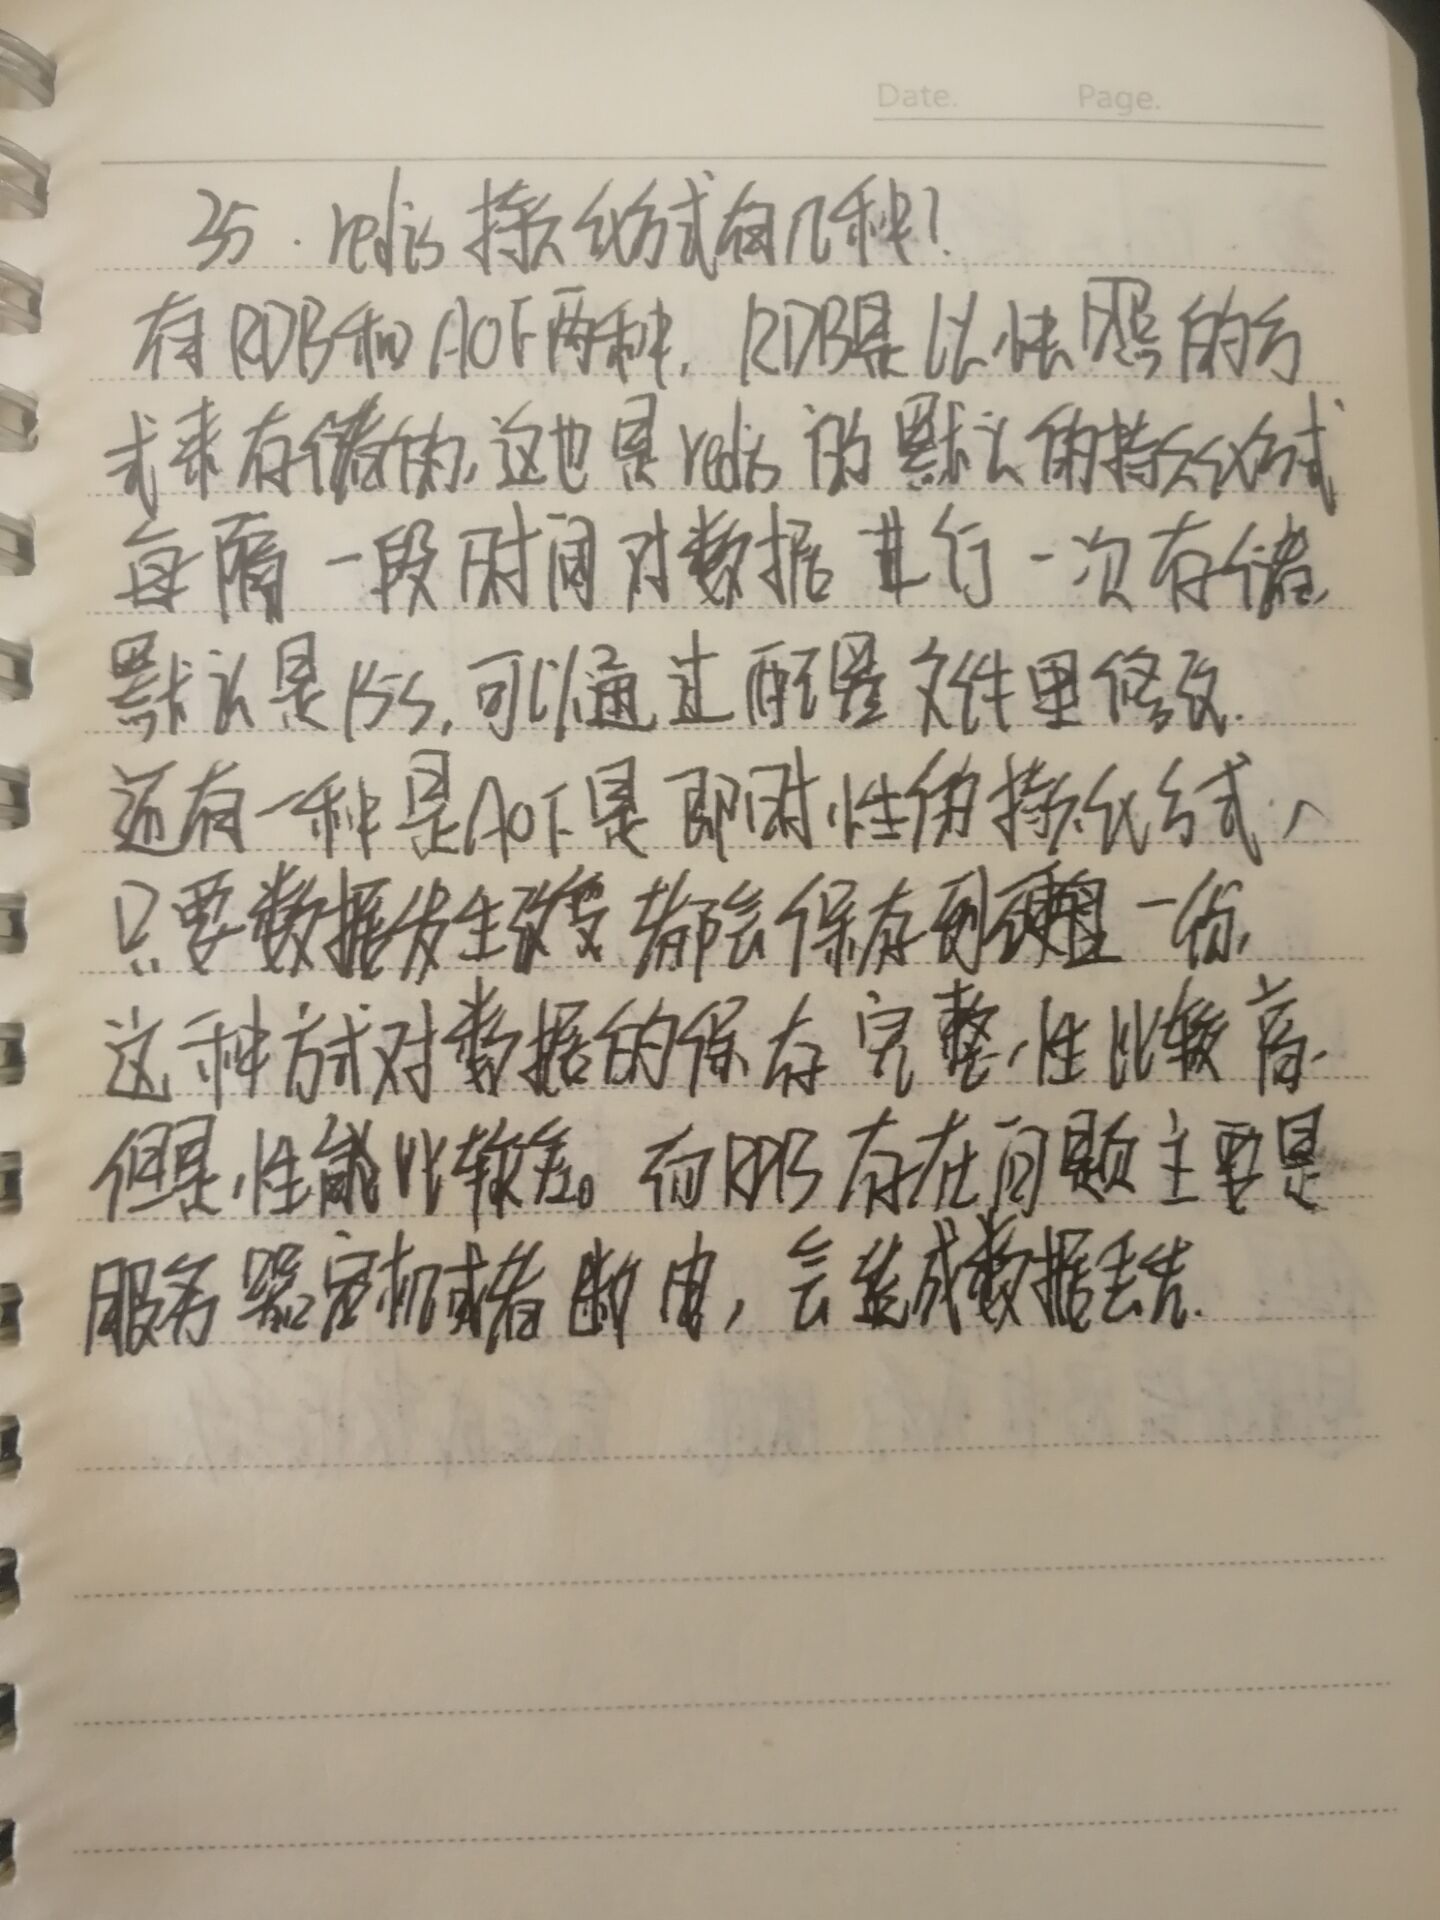 Date. Page.
35. redis持久化方式有几种?
有RDB和AOF两种, RDB是以快照的方
式来存储的,这也是redis的默认的持久化方式
每隔一段时间对数据进行一次存储,
默认是15s,可以通过配置文件里修改.
还有一种是AOF是即时性的持久化方式、
只要数据发生改变都会保存到硬盘一份,
这种方式对数据的保存完整性比较高.
但是,性能比较差。而RDB存在问题主要是
服务器宕机或者断电,会造成数据丢失.